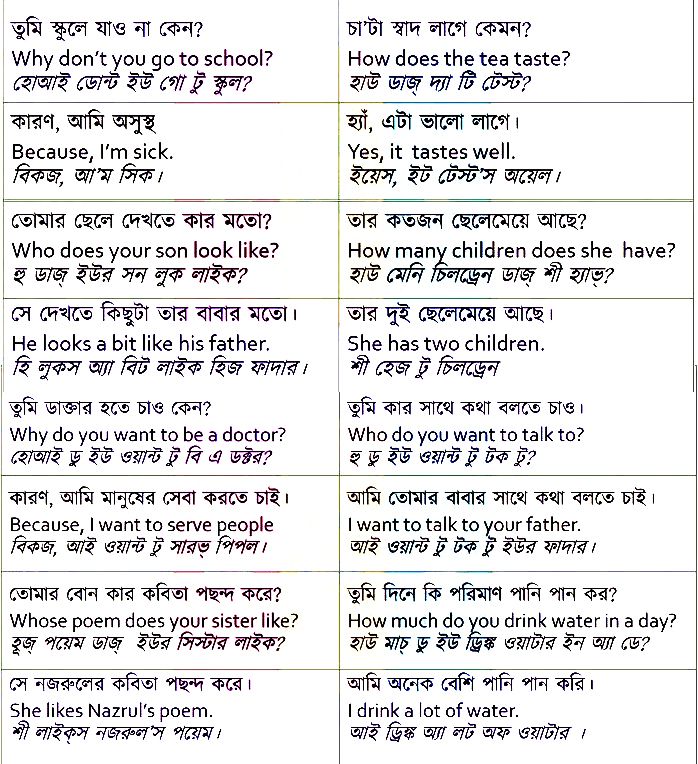 তুমি স্কুলে যাও না কেন?
Why don't you go to school?
হোআই ডোন্ট ইউ গো টু স্কুল?
চা'টা স্বাদ লাগে কেমন?
How does the tea taste?
হাউ ডাজ্ দ্যা টি টেস্ট?
কারণ, আমি অসুস্থ
Because, I'm sick.
বিকজ, আ'ম সিক।
হ্যাঁ, এটা ভালো লাগে।
Yes, it tastes well.
ইয়েস, ইট টেস্ট'স অয়েল।
তোমার ছেলে দেখতে কার মতো?
Who does your son look like?
হু ডাজ্ ইউর সন লুক লাইক?
তার কতজন ছেলেমেয়ে আছে?
How many children does she have?
হাউ মেনি চিলড্রেন ডাজ্ শী হ্যাভ্?
সে দেখতে কিছুটা তার বাবার মতো।
He looks a bit like his father.
হি লুকস অ্যা বিট লাইক হিজ ফাদার।
তার দুই ছেলেমেয়ে আছে।
She has two children.
শী হেজ টু চিলড্রেন
তুমি ডাক্তার হতে চাও কেন?
Why do you want to be a doctor?
হোআই ডু ইউ ওয়ান্ট টু বি এ ডক্টর?
তুমি কার সাথে কথা বলতে চাও।
Who do you want to talk to?
হু ডু ইউ ওয়ান্ট টু টক টু?
কারণ, আমি মানুষের সেবা করতে চাই।
Because, I want to serve people
বিকজ, আই ওয়ান্ট টু সারভ্ পিপল।
আমি তোমার বাবার সাথে কথা বলতে চাই।
I want to talk to your father.
আই ওয়ান্ট টু টক টু ইউর ফাদার।
তোমার বোন কার কবিতা পছন্দ করে?
Whose poem does your sister like?
হূজ্ পয়েম ডাজ্ ইউর সিস্টার লাইক?
তুমি দিনে কি পরিমাণ পানি পান কর?
How much do you drink water in a day?
হাউ মাচ্ ডু ইউ ড্রিঙ্ক ওয়াটার ইন অ্যা ডে?
সে নজরুলের কবিতা পছন্দ করে।
She likes Nazrul's poem.
শী লাইক্স নজরুল'স পয়েম।
আমি অনেক বেশি পানি পান করি।
I drink a lot of water.
আই ড্রিঙ্ক অ্যা লট অফ ওয়াটার ।